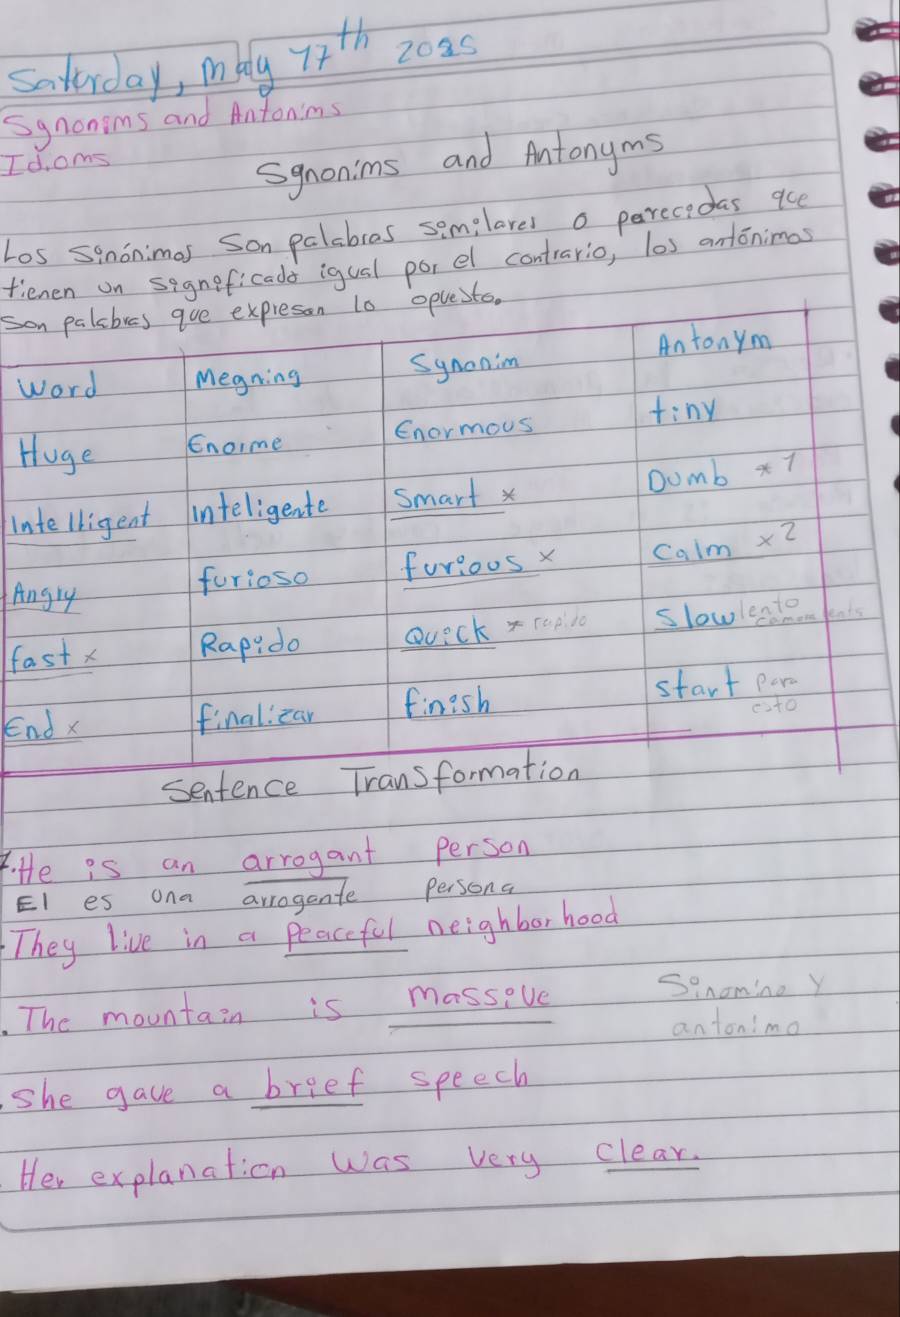 Saturday, May 17th 2025
Synonims and Antonims
Idioms
Synonims and Antonyms
Los sinónimos son palabras similares o parecidas que
tienen un significado igual por el contrario, los antónimos
son palabras que expresan lo opuesto.
Word Meaning Synonim Antonym
Huge Enorme Enormous tiny
Intelligent inteligente Smart x Dumb * 1
Angry furioso furious x Calm x 2
fast x Rapido Quick * rapido Slow lento
End x finalizar finish start para
esto
Sentence Transformation
1. He is an arrogant person
El es una arrogante persona
. They live in a peaceful neighborhood
. The mountain is massive Sinomino y
antonimo
. She gave a brief speech
. Her explanation was very clear.